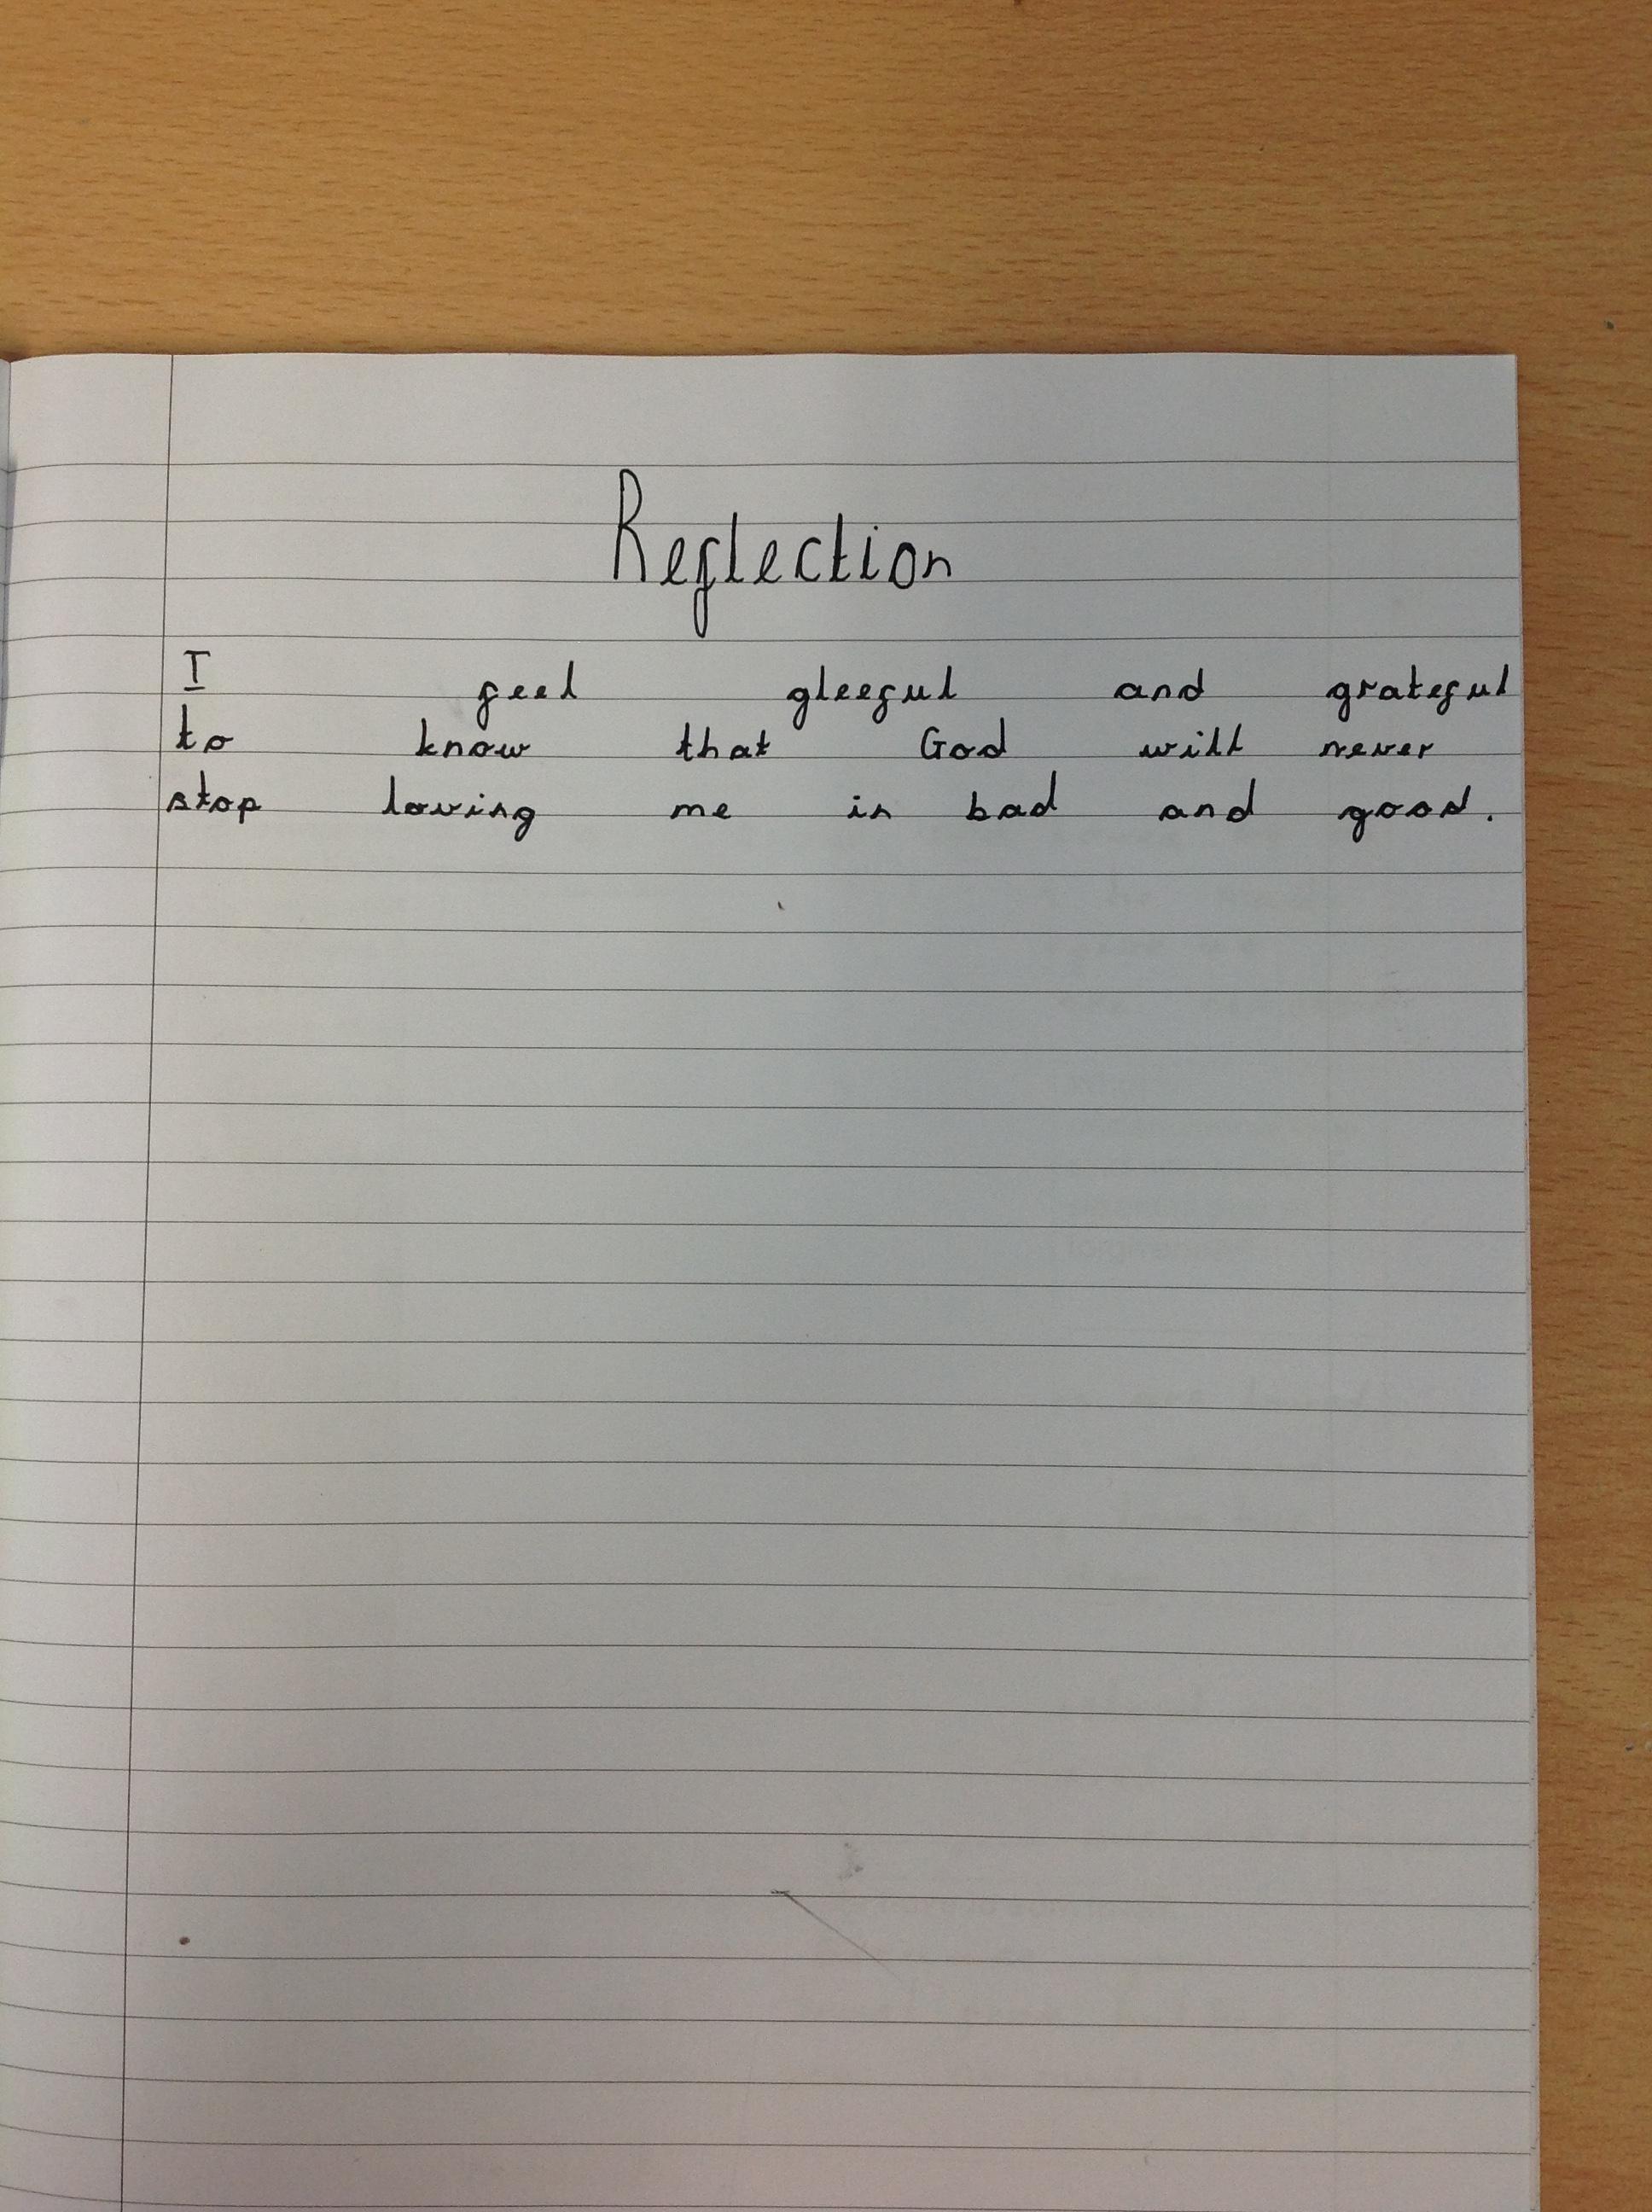 Reflection
I feel gleeful and grateful
to know that God will never
stop loving me in bad and good.